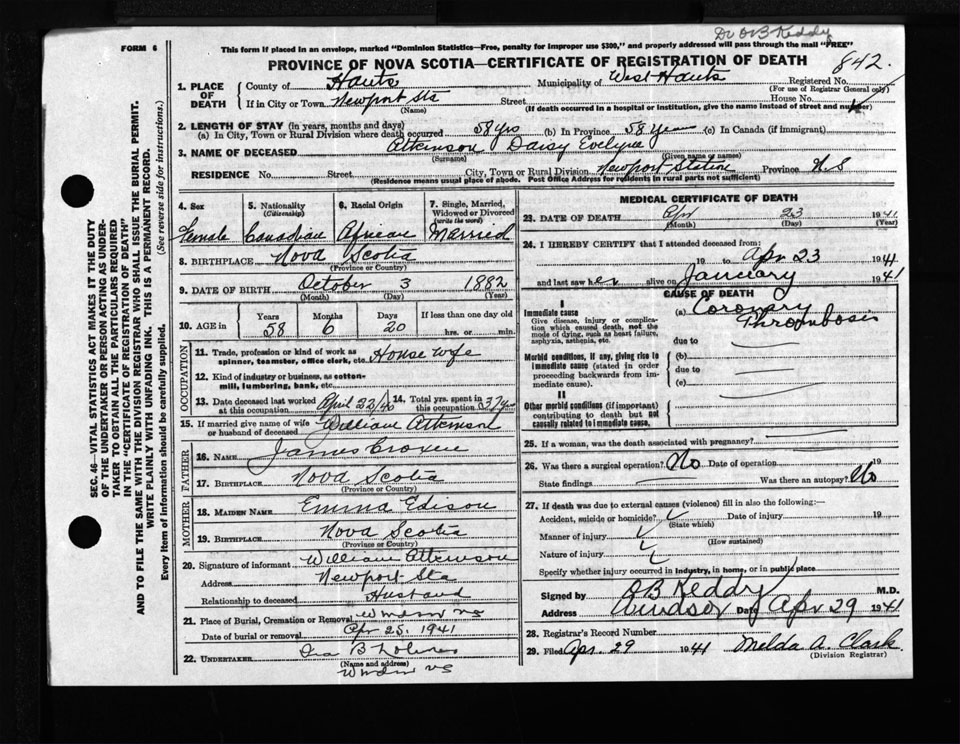 Dr O B Keddy
FORM 6
This form if placed in an envelope, marked "Dominion Statistics—Free, penalty for improper use $300," and properly addressed will pass through the mail "FREE"
PROVINCE OF NOVA SCOTIA—CERTIFICATE OF REGISTRATION OF DEATH
842.
1. PLACE OF DEATH
County of Hants Municipality of West Hants Registered No.
(For use of Registrar General only)
If in City or Town Newport Sta Street House No.
(Name) (If death occurred in a hospital or institution, give the name instead of street and number)
2. LENGTH OF STAY (in years, months and days)
(a) In City, Town or Rural Division where death occurred 58 yrs (b) In Province 58 years (c) In Canada (if immigrant)
3. NAME OF DECEASED Atkinson Daisy Evelyne
(Surname) (Given name or names)
RESIDENCE No. Street City, Town or Rural Division Newport Station Province N S
(Residence means usual place of abode. Post Office Address for residents in rural parts not sufficient)
4. Sex Female
5. Nationality (Citizenship) Canadian
6. Racial Origin African
7. Single, Married, Widowed or Divorced (write the word) Married
8. BIRTHPLACE Nova Scotia
(Province or Country)
9. DATE OF BIRTH October 3 1882
(Month) (Day) (Year)
10. AGE in Years 58 Months 6 Days 20 If less than one day old hrs. or min.
OCCUPATION
11. Trade, profession or kind of work as spinner, teamster, office clerk, etc. House wife
12. Kind of industry or business, as cotton-mill, lumbering, bank, etc.
13. Date deceased last worked at this occupation April 23/40 14. Total yrs. spent in this occupation 37 yrs
15. If married give name of wife or husband of deceased William Atkinson
FATHER
16. NAME James Croxen
17. BIRTHPLACE Nova Scotia
(Province or Country)
MOTHER
18. MAIDEN NAME Emma Edison
19. BIRTHPLACE Nova Scotia
(Province or Country)
20. Signature of informant William Atkinson
Address Newport Sta
Relationship to deceased Husband
21. Place of Burial, Cremation or Removal Windsor NS
Date of burial or removal Apr 25, 1941
22. UNDERTAKER Ira B
(Name and address)
Windsor NS
MEDICAL CERTIFICATE OF DEATH
23. DATE OF DEATH Apr 23 1941
(Month) (Day) (Year)
24. I HEREBY CERTIFY that I attended deceased from:
19 to Apr 23 1941
and last saw her alive on January 1941
CAUSE OF DEATH
I
Immediate cause
Give disease, injury or complication which caused death, not the mode of dying, such as heart failure, asphyxia, asthenia, etc.
(a) Coronary Thrombosis
due to
Morbid conditions, if any, giving rise to immediate cause (stated in order proceeding backwards from immediate cause).
(b)
due to
(c)
II
Other morbid conditions (if important) contributing to death but not causally related to immediate cause.
25. If a woman, was the death associated with pregnancy?
26. Was there a surgical operation? No Date of operation 19
State findings Was there an autopsy? No
27. If death was due to external causes (violence) fill in also the following:—
Accident, suicide or homicide? Date of injury 19
(State which)
Manner of injury
(How sustained)
Nature of injury
Specify whether injury occurred in industry, in home, or in public place
Signed by O B Keddy M.D.
Address Windsor Date Apr 29 1941
28. Registrar's Record Number
29. Filed Apr. 29 1941 Melda A. Clark
(Division Registrar)
SEC. 46—VITAL STATISTICS ACT MAKES IT THE DUTY
OF THE UNDERTAKER OR PERSON ACTING AS UNDER-
TAKER TO OBTAIN ALL THE PARTICULARS REQUIRED
IN THE "CERTIFICATE OF REGISTRATION OF DEATH"
AND TO FILE THE SAME WITH THE DIVISION REGISTRAR WHO SHALL ISSUE THE BURIAL PERMIT.
WRITE PLAINLY WITH UNFADING INK. THIS IS A PERMANENT RECORD.
Every item of information should be carefully supplied. (See reverse side for instructions.)